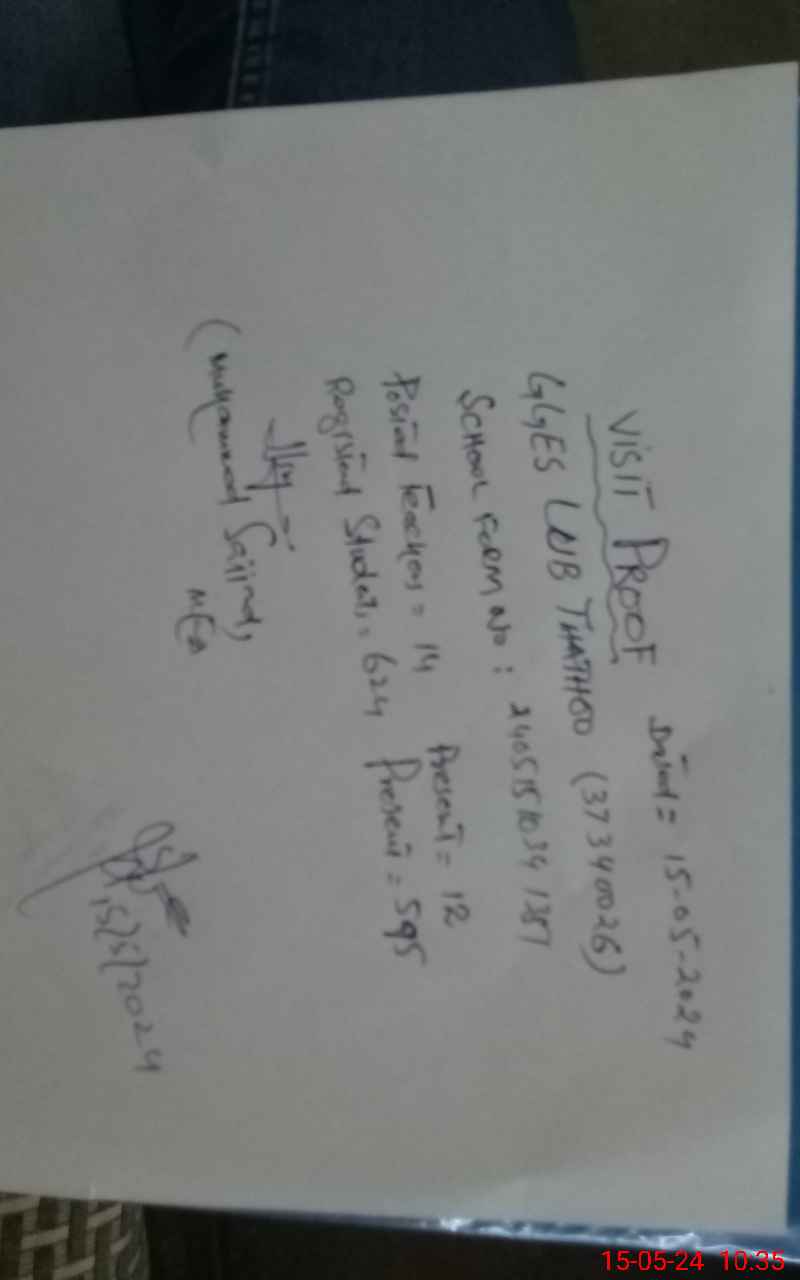 VISIT PROOF Dated = 15-05-2024
GGES LNB THATHOO (37340026)
SCHOOL FORM No: 2405151034 1387
Posted Teachers = 14 Present = 12
Registered Students = 624 Present = 595
(Muhammad Sajjad,
MEA
15/5/2024
15-05-24 10:35